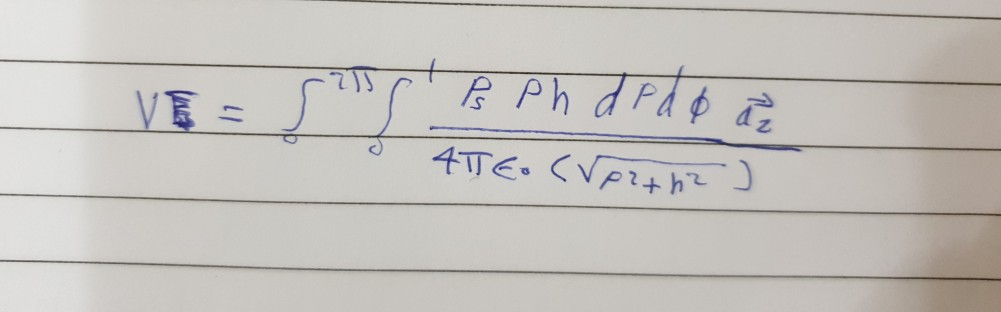 V = ∫₀^2π ∫₀^1 ρₛ ρ h dρ dϕ a⃗_z / 4πϵ₀ (√ρ²+h²)